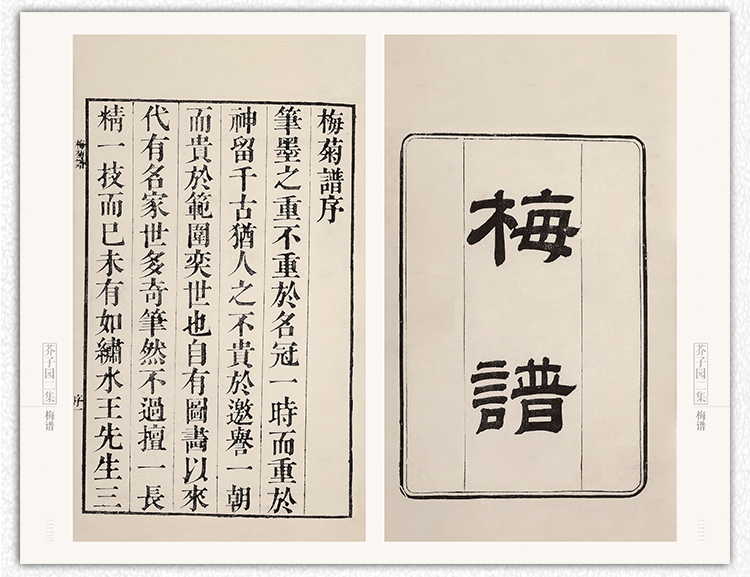 梅譜
梅菊譜序
筆墨之重不重於名冠一時而重於
神留千古猶人之不貴於邀譽一朝
而貴於範圍奕世也自有圖畵以來
代有名家世多竒筆然不過擅一長
精一技而已未有如繡水王先生三
梅菊譜
序一
芥子园二集
梅谱
芥子园二集
梅谱